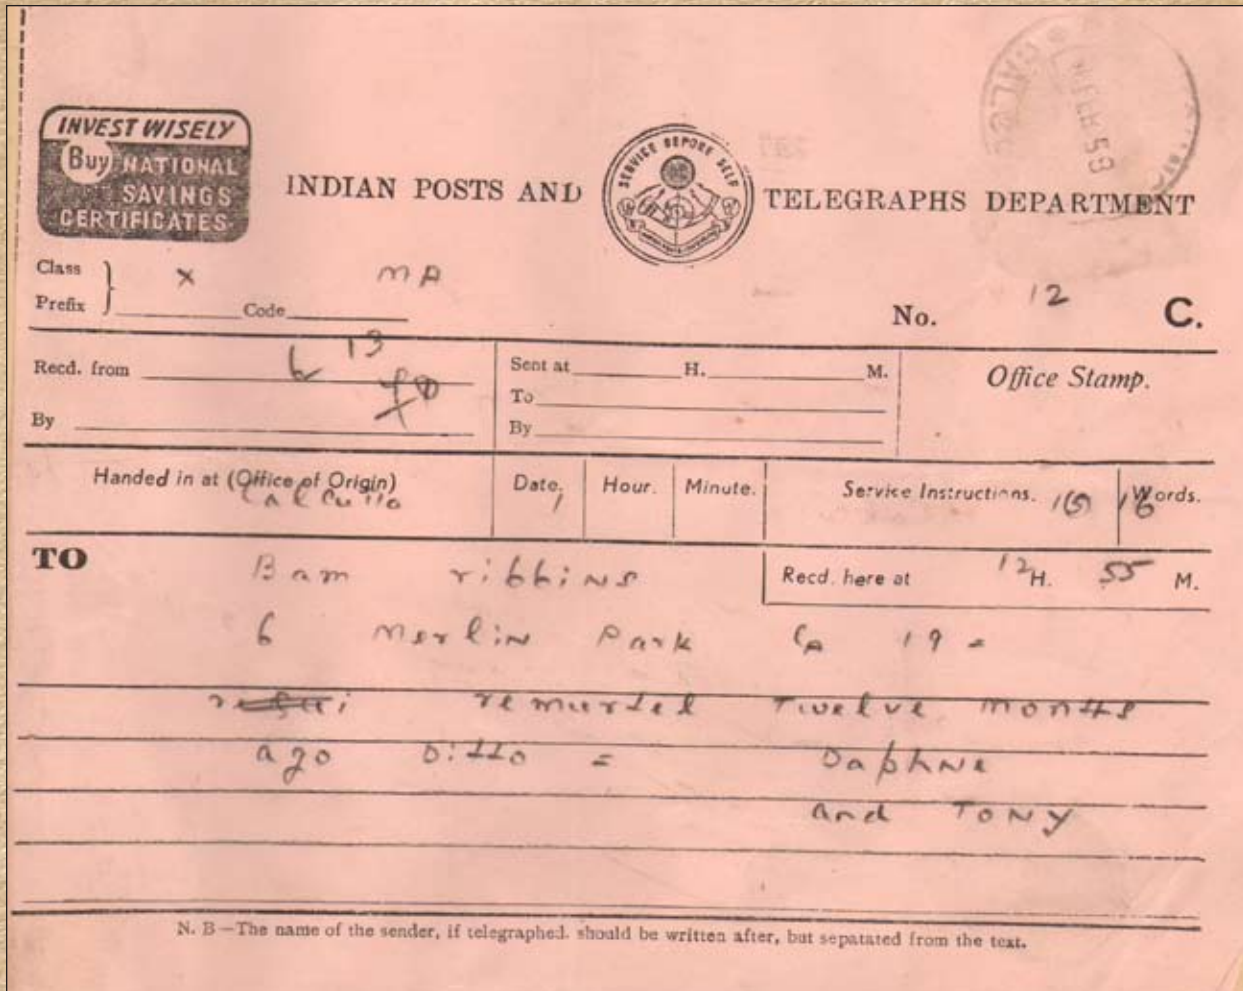 INVEST WISELY
Buy NATIONAL
SAVINGS
CERTIFICATES
INDIAN POSTS AND
SERVICE BEFORE SELF
TELEGRAPHS DEPARTMENT
Class
Prefix
X
Code
MA
No. 12 C.
Recd. from 6 13
By
Sent at H. M.
To
By
Office Stamp.
Handed in at (Office of Origin)
Calcutta
Date. 1
Hour.
Minute.
Service Instructions.
16 Words.
TO
Bam ribbins
Recd. here at 12 H. 55 M.
6 Merlin Park CA 19 =
twelve months
ago Ditto = Daphne
and TONY
N. B—The name of the sender, if telegraphed. should be written after, but sepatated from the text.